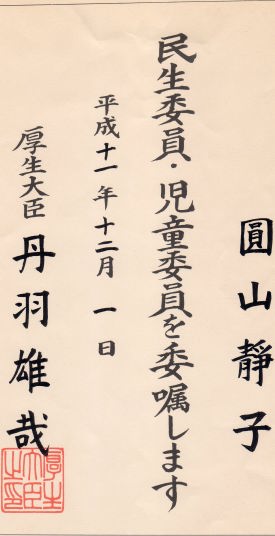 圓山靜子
民生委員・児童委員を委嘱します
平成十一年十二月一日
厚生大臣 丹羽雄哉
厚生大臣之印